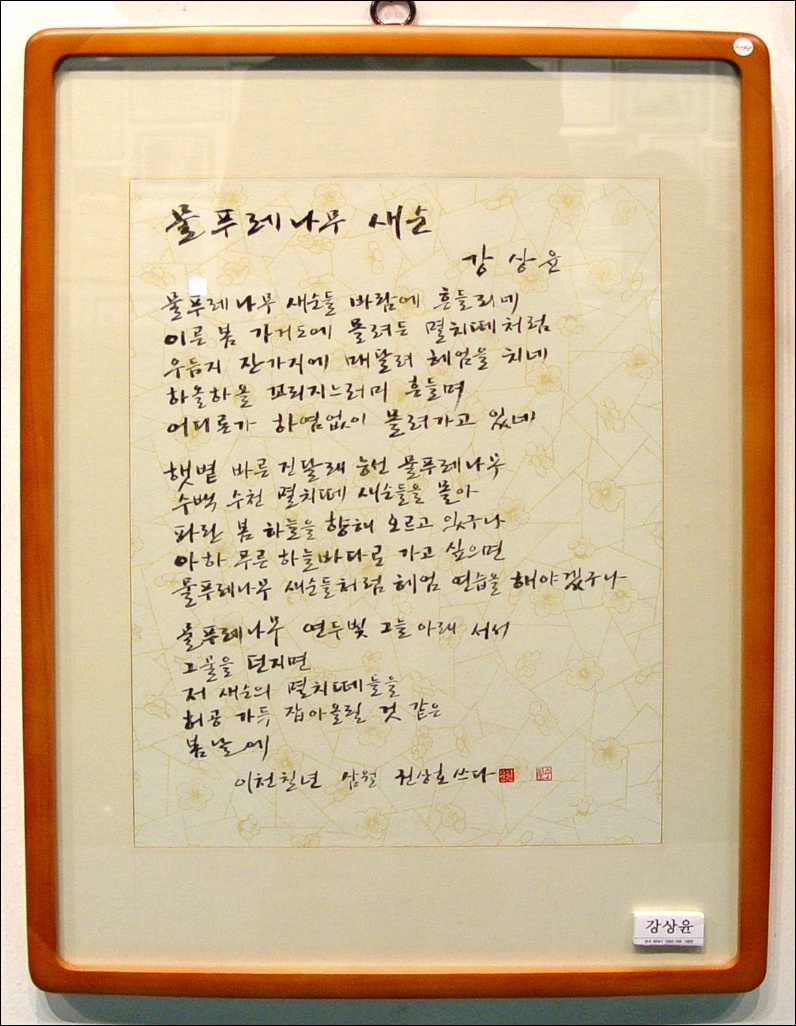 물푸레나무 새순
강상윤
물푸레나무 새순들 바람에 흔들리네
이른 봄 가거도에 몰려든 멸치떼처럼
우듬지 잔가지에 매달려 헤엄을 치네
하올하올 꼬리지느러미 흔들며
어디론가 하염없이 몰려가고 있네
햇볕 바른 진달래 능선 물푸레나무
수백 수천 멸치떼 새순들을 몰아
파란 봄 하늘을 향해 오르고 있구나
아하 푸른 하늘바다로 가고 싶으면
물푸레나무 새순들처럼 헤엄 연습을 해야겠구나
물푸레나무 연두빛 그늘 아래 서서
그물을 던지면
저 새순의 멸치떼들을
허공 가득 잡아올릴 것 같은
봄날에
이천칠년 삼월 권상호 쓰다
강상윤